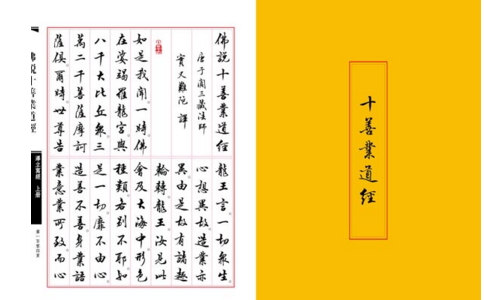 佛說十善業道經
唐于闐三藏法師
實叉難陀 譯
如是我聞一時佛
在娑竭羅龍宮與
八千大比丘眾三
萬二千菩薩摩訶
薩俱爾時世尊告
龍王言一切眾生
心想異故造業亦
異由是故有諸趣
輪轉龍王汝見此
會及大海中形色
種類各別不耶如
是一切靡不由心
造善不善身業語
業意業所致而心
佛說十善業道經
淨土寫經 上册
十善業道經